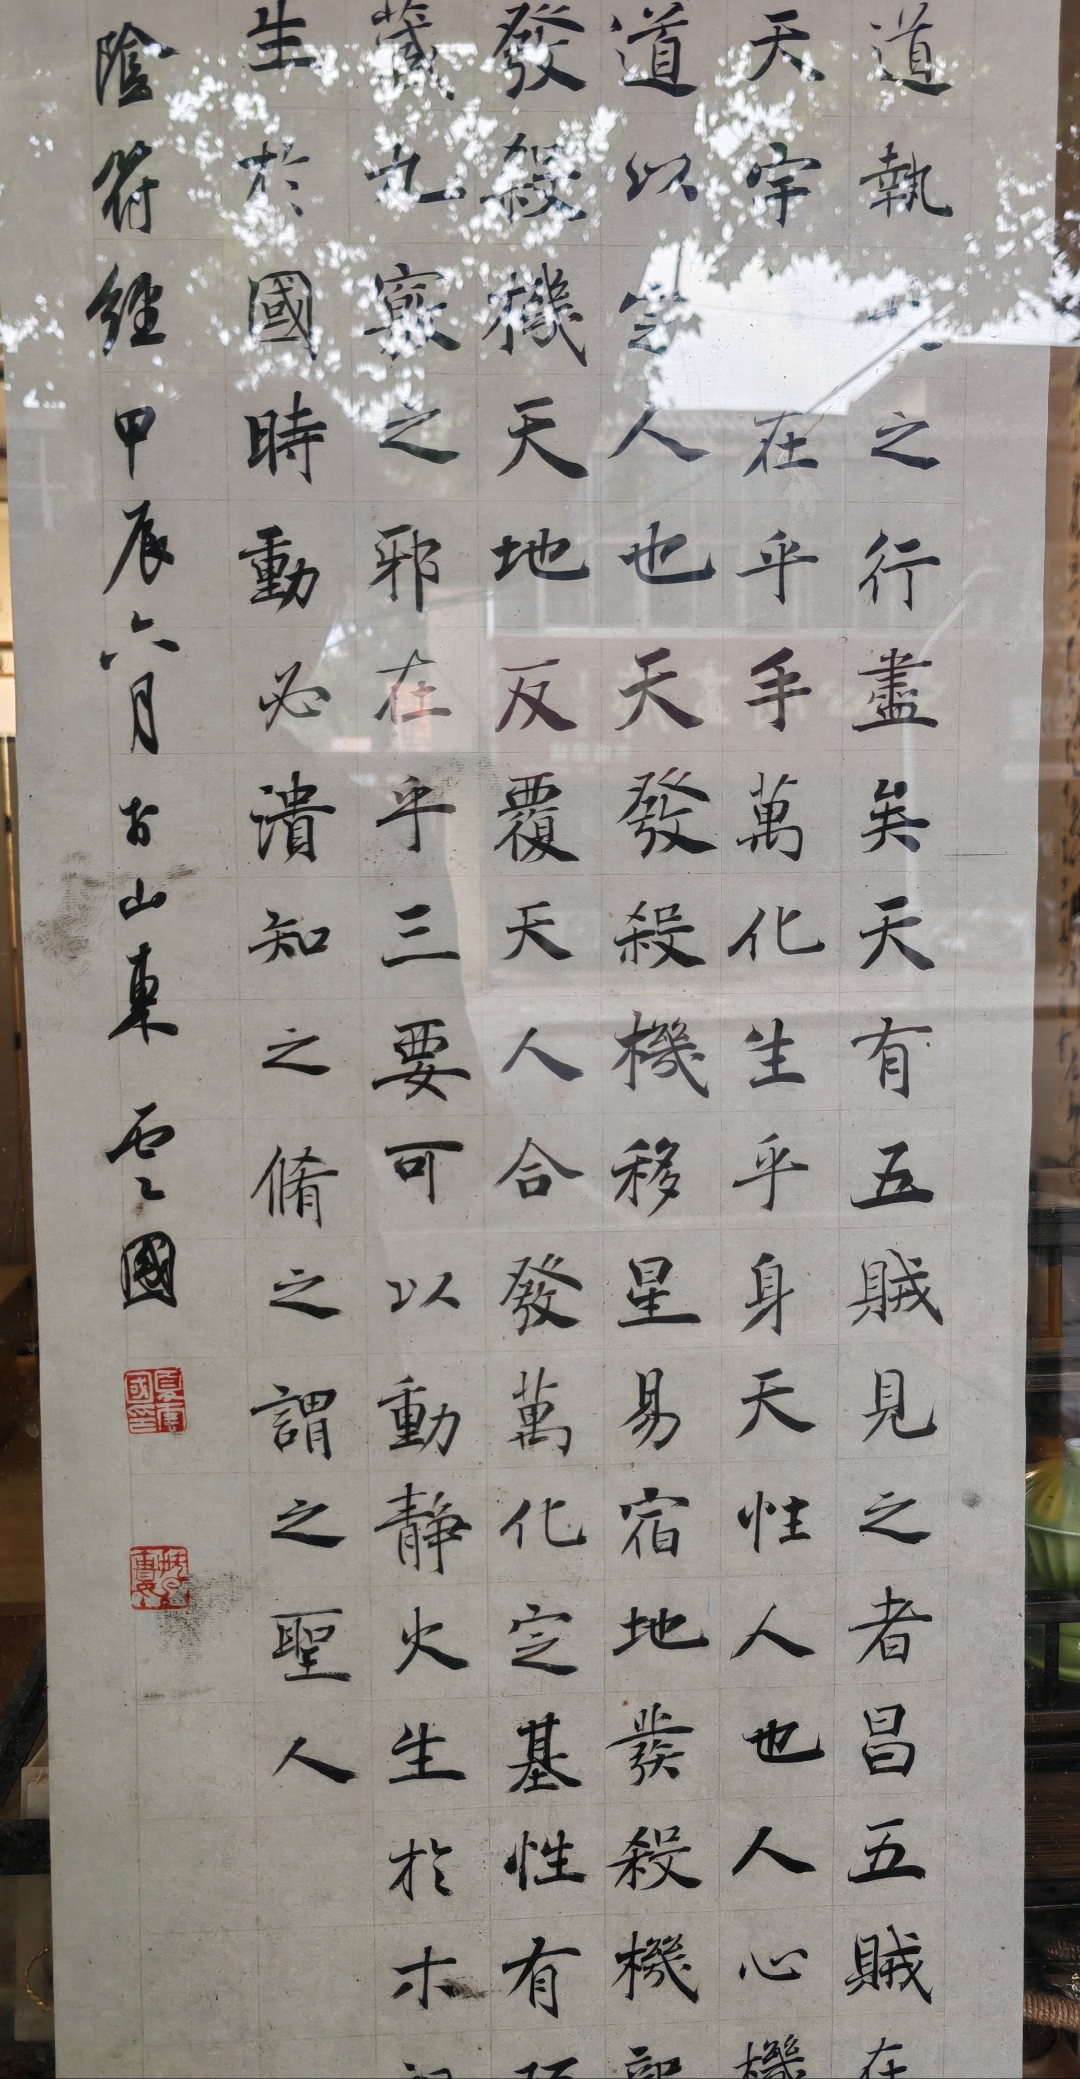 道執之行盡矣天有五賊見之者昌五賊在
天宇在乎手萬化生乎身天性人也人心機
道以定人也天發殺機移星易宿地發殺機
發殺機天地反覆天人合發萬化定基性有
藏九竅之邪在乎三要可以動靜火生於木
生於國時動必潰知之脩之謂之聖人
陰符經甲辰六月於山東雲國